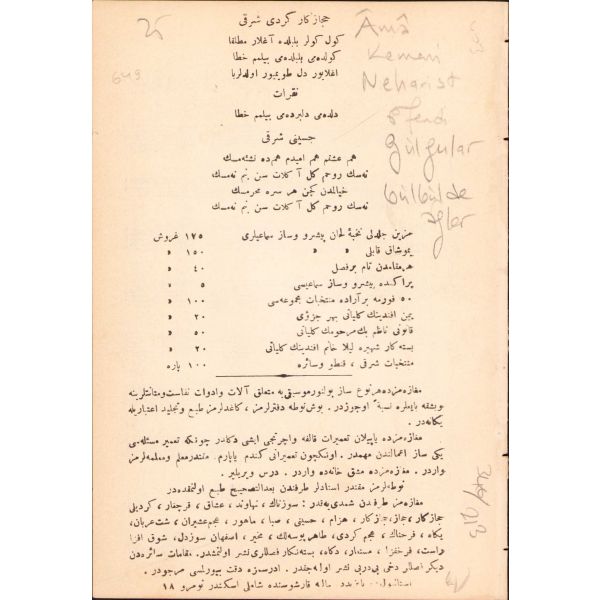 حجازكار كردى شرقى
كول كولر بلبلده آغلار مطلقا
كولده‌مى بلبلده‌مى بيلمم خطا
اغلايور دل طويميور اولدلربا
نقرات
دلده‌مى دلبرده‌مى بيلمم خطا
حسينى شرقى
هم عشقم هم اميدم هم‌ده نشئه‌مسك
نه‌سك روحم كل آكلات سن بنم نه‌مسك
خيالمدن كچن هر سره محرمسك
نه‌سك روحم كل آكلات سن بنم نه‌مسك
مزين جلدلى نخبۀ الحان پيشرو وساز سماعيلرى ١٧٥ غروش
يموشاق قابلى » » ١٥٠ »
هر مقامدن تام بر فصل ٤٠ »
پراكنده پيشرو وساز سماعيسى ٥ »
٥٠ فورمه بر آراده منتخبات مجموعه‌سى ١٠٠ »
يمين افندينك كلياتى بهر جزؤى ٢٠ »
قانونى ناظم بك مرحومك كلياتى ٥٠ »
بسته‌كار شهيره ليلا خانم افندينك كلياتى ٢٠ »
منتخبات شرقى ، قنطو وسائره ١٠٠ پاره
مغازه‌مزده هر نوع ساز بولنور موسيقى‌يه متعلق آلات وادوات نفاست ومتانتلرينه
وبشقه يرلره نسبةً اوجوزدر . بوش نوطه دفترلرمز ، كاغدلرمز طبع وتجليد اعتباريله
يكانه‌در .
مغازه‌مزده ياپيلان تعميرات قالفه واجرتجى ايشى دكلدر چونكه تعمير مسئله‌سى
يكى ساز اعمالندن مهمدر . اونكچون تعميراتى كندم ياپارم . مقتدر معلم ومعلمه‌لرمز
واردر . مغازه‌مزده مشق خانه‌ده واردر . درس ويريلير .
نوطه‌لرمز مقتدر استادلر طرفندن بعدالتصحيح طبع اولنمقده‌در
مغازه‌مز طرفندن شمدى‌يه‌قدر : سوزناك ، نهاوند ، عشاق ، قرجغار ، كرديلى
حجازكار ، حجاز ، حجازكار ، هزام ، حسينى ، صبا ، ماهور ، عجم‌عشيران ، شت عربان ،
يكاه ، فرحناك ، عجم كردى ، طاهر بوسه‌لك ، مخير ، اصفهان سوزدل ، شوق افزا
راست ، فرحفزا ، مستعار ، دكاه ، بسته‌نكار فصللرى نشر اولنمشدر . مقامات سائره‌دن
ديكر فصللر دخى پى‌درپى نشر اولنه‌جقدر . ادرسمزه دقت بيورلمسى مرجودر .
قارشوسنده شاملى اسكندر نومرو ١٨
Âmâ
Kemani
Neharist
Efendi
Gülgular
bülbülde
ağlar
25
649